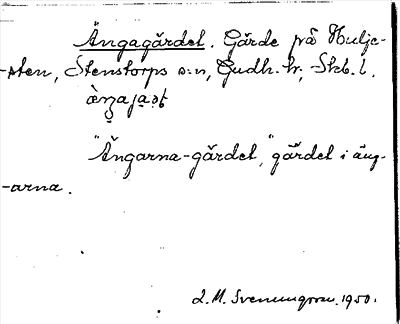 Ängagärdet. Gärde på Hulje-
-sten, Stenstorps s:n, Gudh. hr, Skb. l.
"Ängarna-gärdet," gärdet i äng-
-arna.
L. M. Svenungsson. 1950.